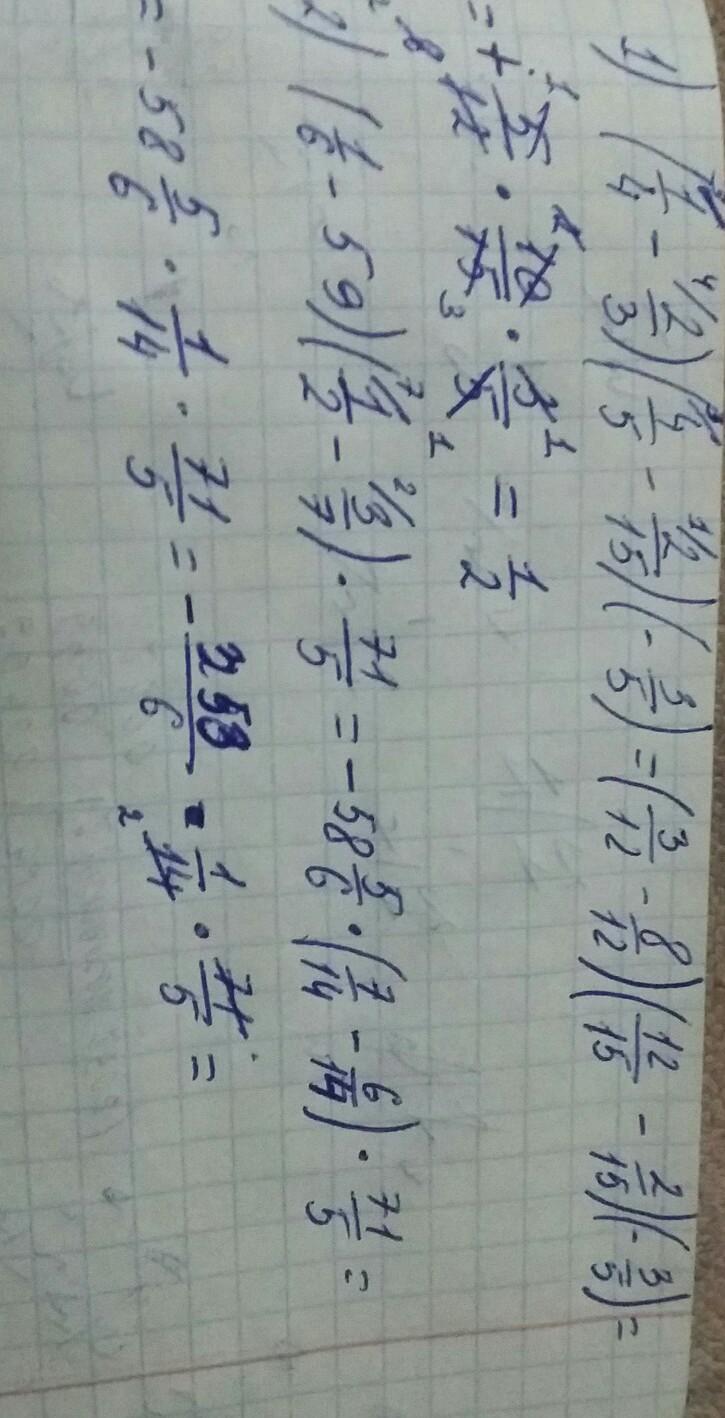 1) (1/4 - 2/3)(4/5 - 2/15)(-3/5) = (3/12 - 8/12)(12/15 - 2/15)(-3/5) =
= + 5/12 · 10/15 · 3/5 = 1/2
2) (1/6 - 59)(1/2 - 3/7) · 71/5 = -58 5/6 · (7/14 - 6/14) · 71/5 =
= -58 5/6 · 1/14 · 71/5 = - 353/6 · 1/14 · 71/5 =